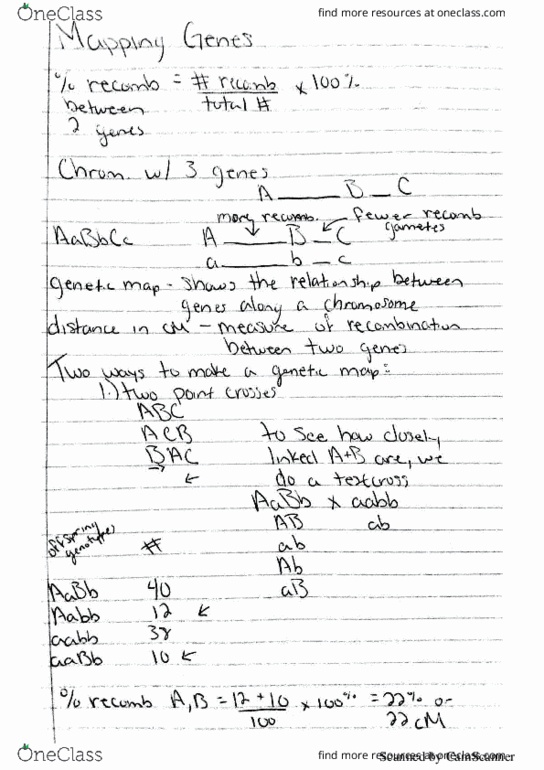 OneClass
find more resources at oneclass.com
Mapping Genes
% recomb = # recomb x 100%
between total #
2 genes
Chrom. w/ 3 genes
A B C
more recomb. fewer recomb
gametes
AaBbCc A B C
a b c
genetic map - shows the relationship between
genes along a chromosome
distance in cM - measure of recombination
between two genes
Two ways to make a genetic map:
1.) two point crosses
ABC
ACB to see how closely
BAC linked A+B are, we
do a testcross
AaBb x aabb
AB ab
offspring genotypes # ab
Ab
AaBb 40 aB
Aabb 12
aabb 38
aaBb 10
% recomb A,B = 12 + 10 x 100% = 22% or
100 22 cM
OneClass
find more resources at oneclass.com
Scanned by CamScanner